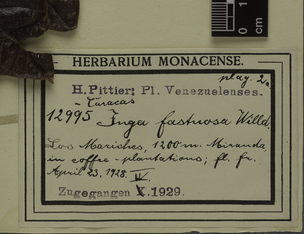 0
1
cm
HERBARIUM MONACENSE.
plag. 2.
H. Pittier: Pl. Venezuelenses.
- Caracas
12995 Inga fastuosa Willd.
Los Mariches, 1200 m. Miranda
in coffee-plantations; fl. fr.
April 23, 1928.
Zugegangen X.1929.